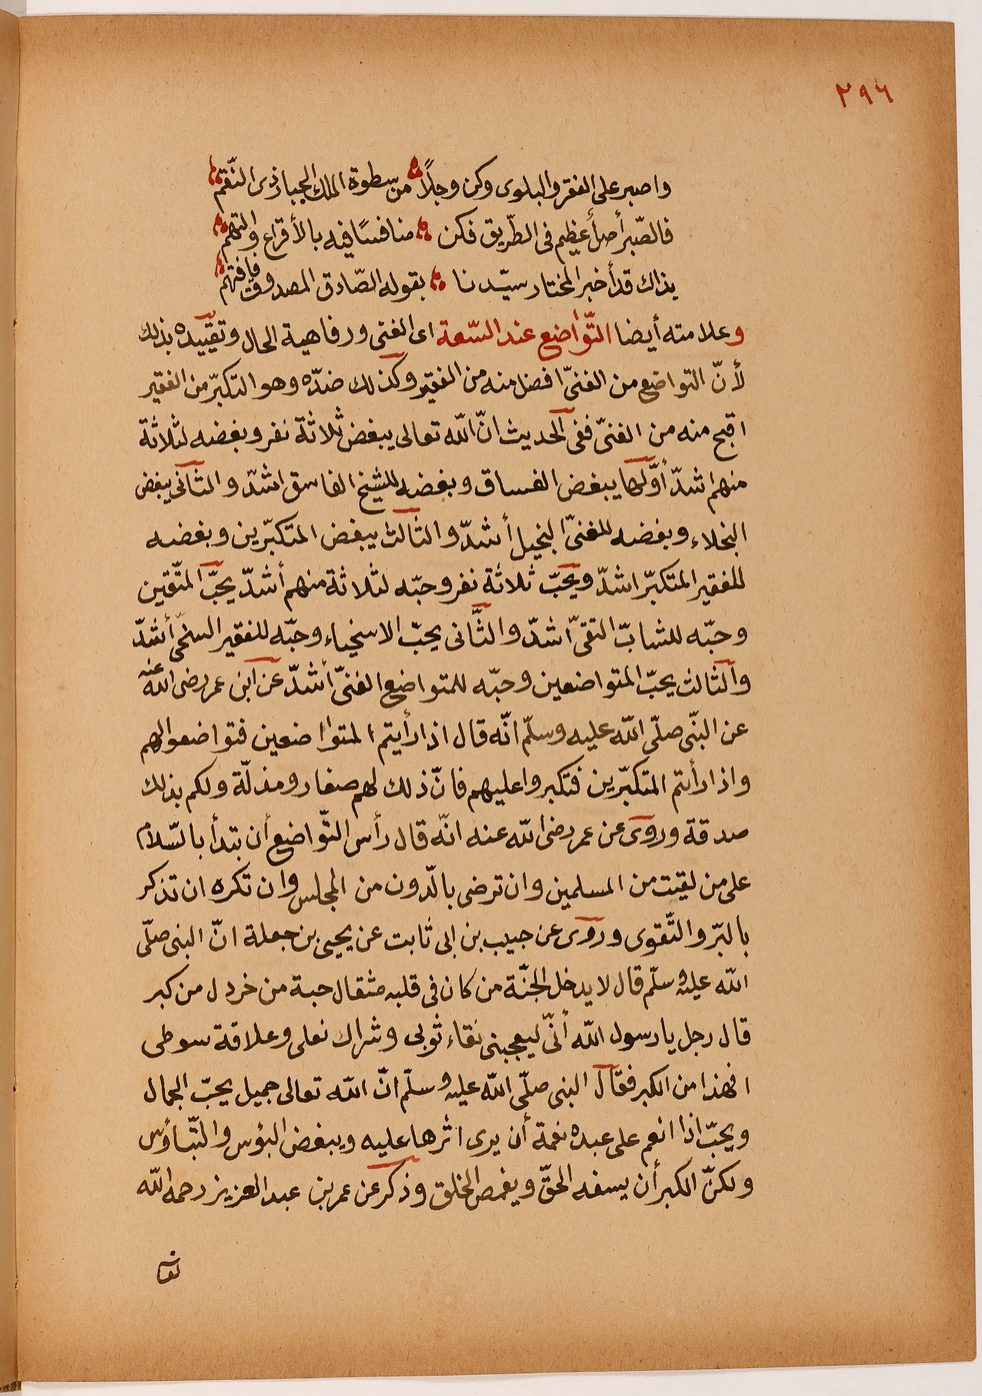 ٢٩٦
واصبر على الفقر والبلوى وكن وجلًا من سطوة الملك الجبار ذى النّقم
فالصّبر أصل أعظيم فى الطّريق فكن منافسًا فيه بالأقراع والتهم
بذاك قد أخبر المختار سيّدنا بقوله الصّادق المصدوق فافتهم
وعلامته أيضا التّواضع عند السّعة اى الغنى ورفاهية الحال وتقييده بذلك
لأنّ التواضع من الغنىّ افضل منه من الفقير وكذلك ضدّه وهو التكبّر من الفقير
اقبح منه من الغنىّ ففى الحديث انّ الله تعالى يبغض ثلاثة نفر وبغضه لثلاثة
منهم اشدّ أوّلها يبغض الفساق وبغضه للشيخ الفاسق اشدّ والثّانى يبغض
البخلاء وبغضه للغنىّ البخيل أشدّ والثّالث يبغض المتكبّرين وبغضه
للفقير المتكبّر اشدّ ويحبّ ثلاثة نفر وحبّه لثلاثة منهم أشدّ يحبّ المتّقين
وحبّه للشابّ التقىّ اشدّ والثّانى يحبّ الاسخياء وحبّه للفقير السخىّ أشدّ
والثّالث يحبّ المتواضعين وحبّه للمتواضع الغنىّ أشدّ عن ابن عمر رضى الله عنه
عن النبّى صلّى الله عليه وسلّم انّه قال اذا رأيتم المتواضعين فتواضعوا لهم
واذا رأيتم المتكبّرين فتكبروا عليهم فانّ ذلك لهم صغار ومذلّة ولكم بذلك
صدقة وروى عن عمر رضى الله عنه انّه قال رأس التّواضع أن تبتدأ بالسّلام
على من لقيت من المسلمين وان ترضى بالدّون من المجلس وان تكره ان تذكر
بالبرّ والتّقوى وروى عن حبيب بن ابى ثابت عن يحيى بن جعلة انّ النبى صلّى
الله عليه وسلّم قال لا يدخل الجنّة من كان فى قلبه مثقال حبة من خردل من كبر
قال رجل يا رسول الله أنّى ليعجبنى نقاء ثوبى وشراك نعلى وعلاقة سوطى
افهذا من الكبر فقال النبى صلّى الله عليه وسلّم انّ الله تعالى جميل يحبّ الجمال
ويحبّ اذا انعم على عبده نعمة أن يرى اثرها عليه ويبغض البؤس والتّباؤس
ولكنّ الكبر أن يسفه الحقّ ويغمص الخلق وذكر عن عمر بن عبد العزيز رحمه الله